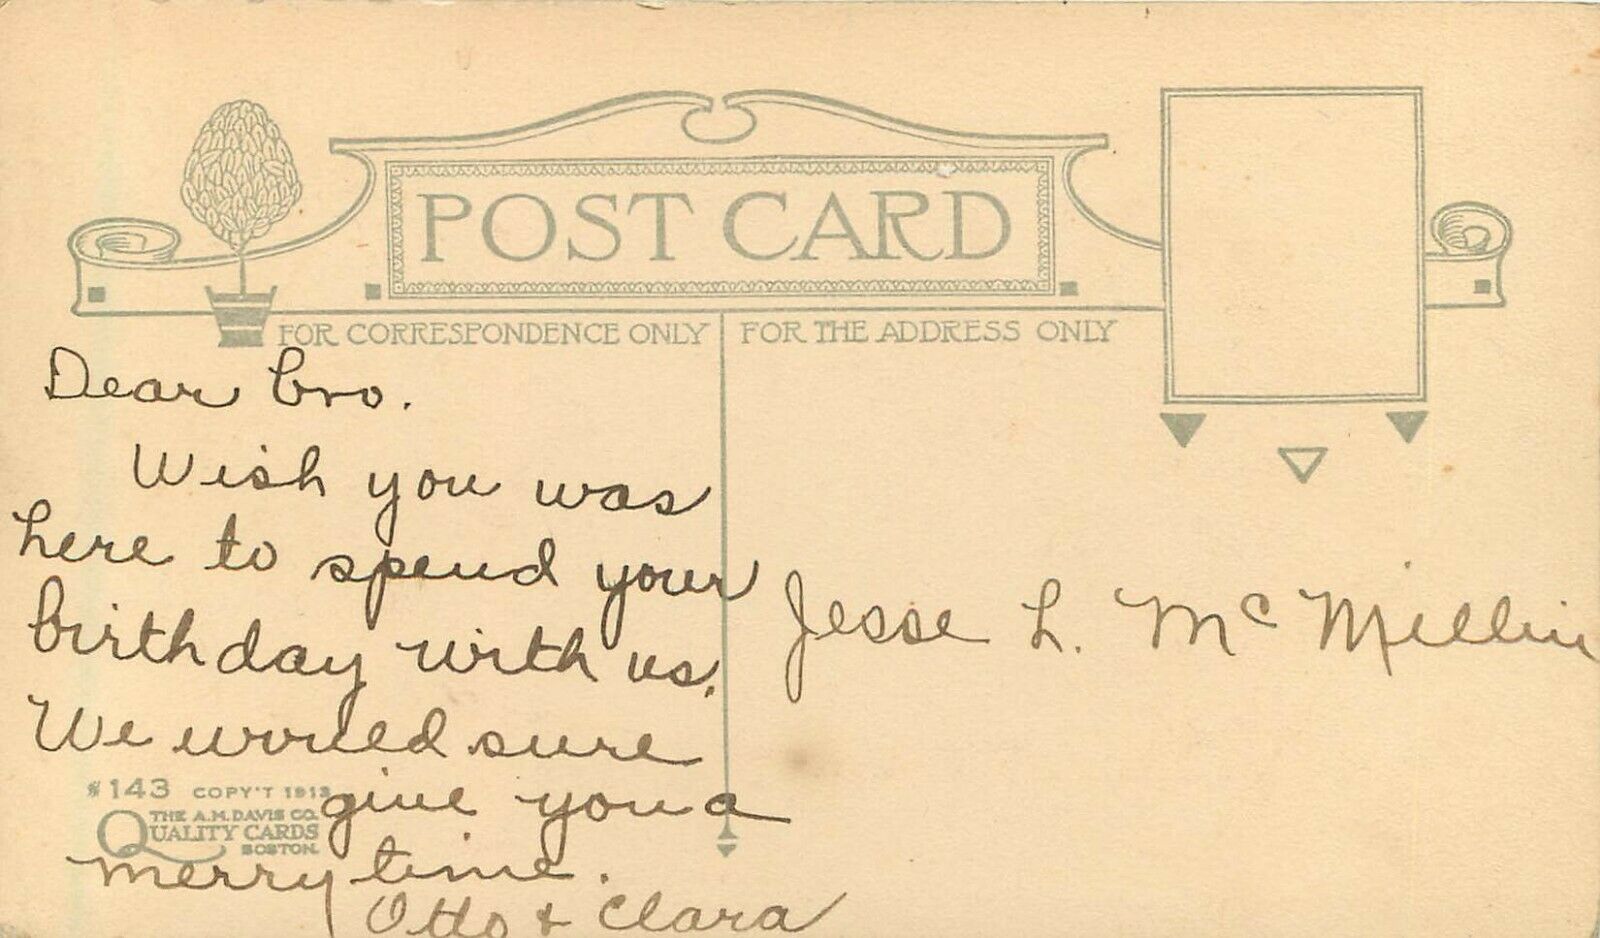 POST CARD
FOR CORRESPONDENCE ONLY
FOR THE ADDRESS ONLY
Dear bro.
Wish you was
here to spend your
birthday with us.
We would sure
give you a
merry time.
Otto & Clara
Jesse L. McMillin
143 COPY'T 1913
THE A.M. DAVIS CO.
QUALITY CARDS
BOSTON.